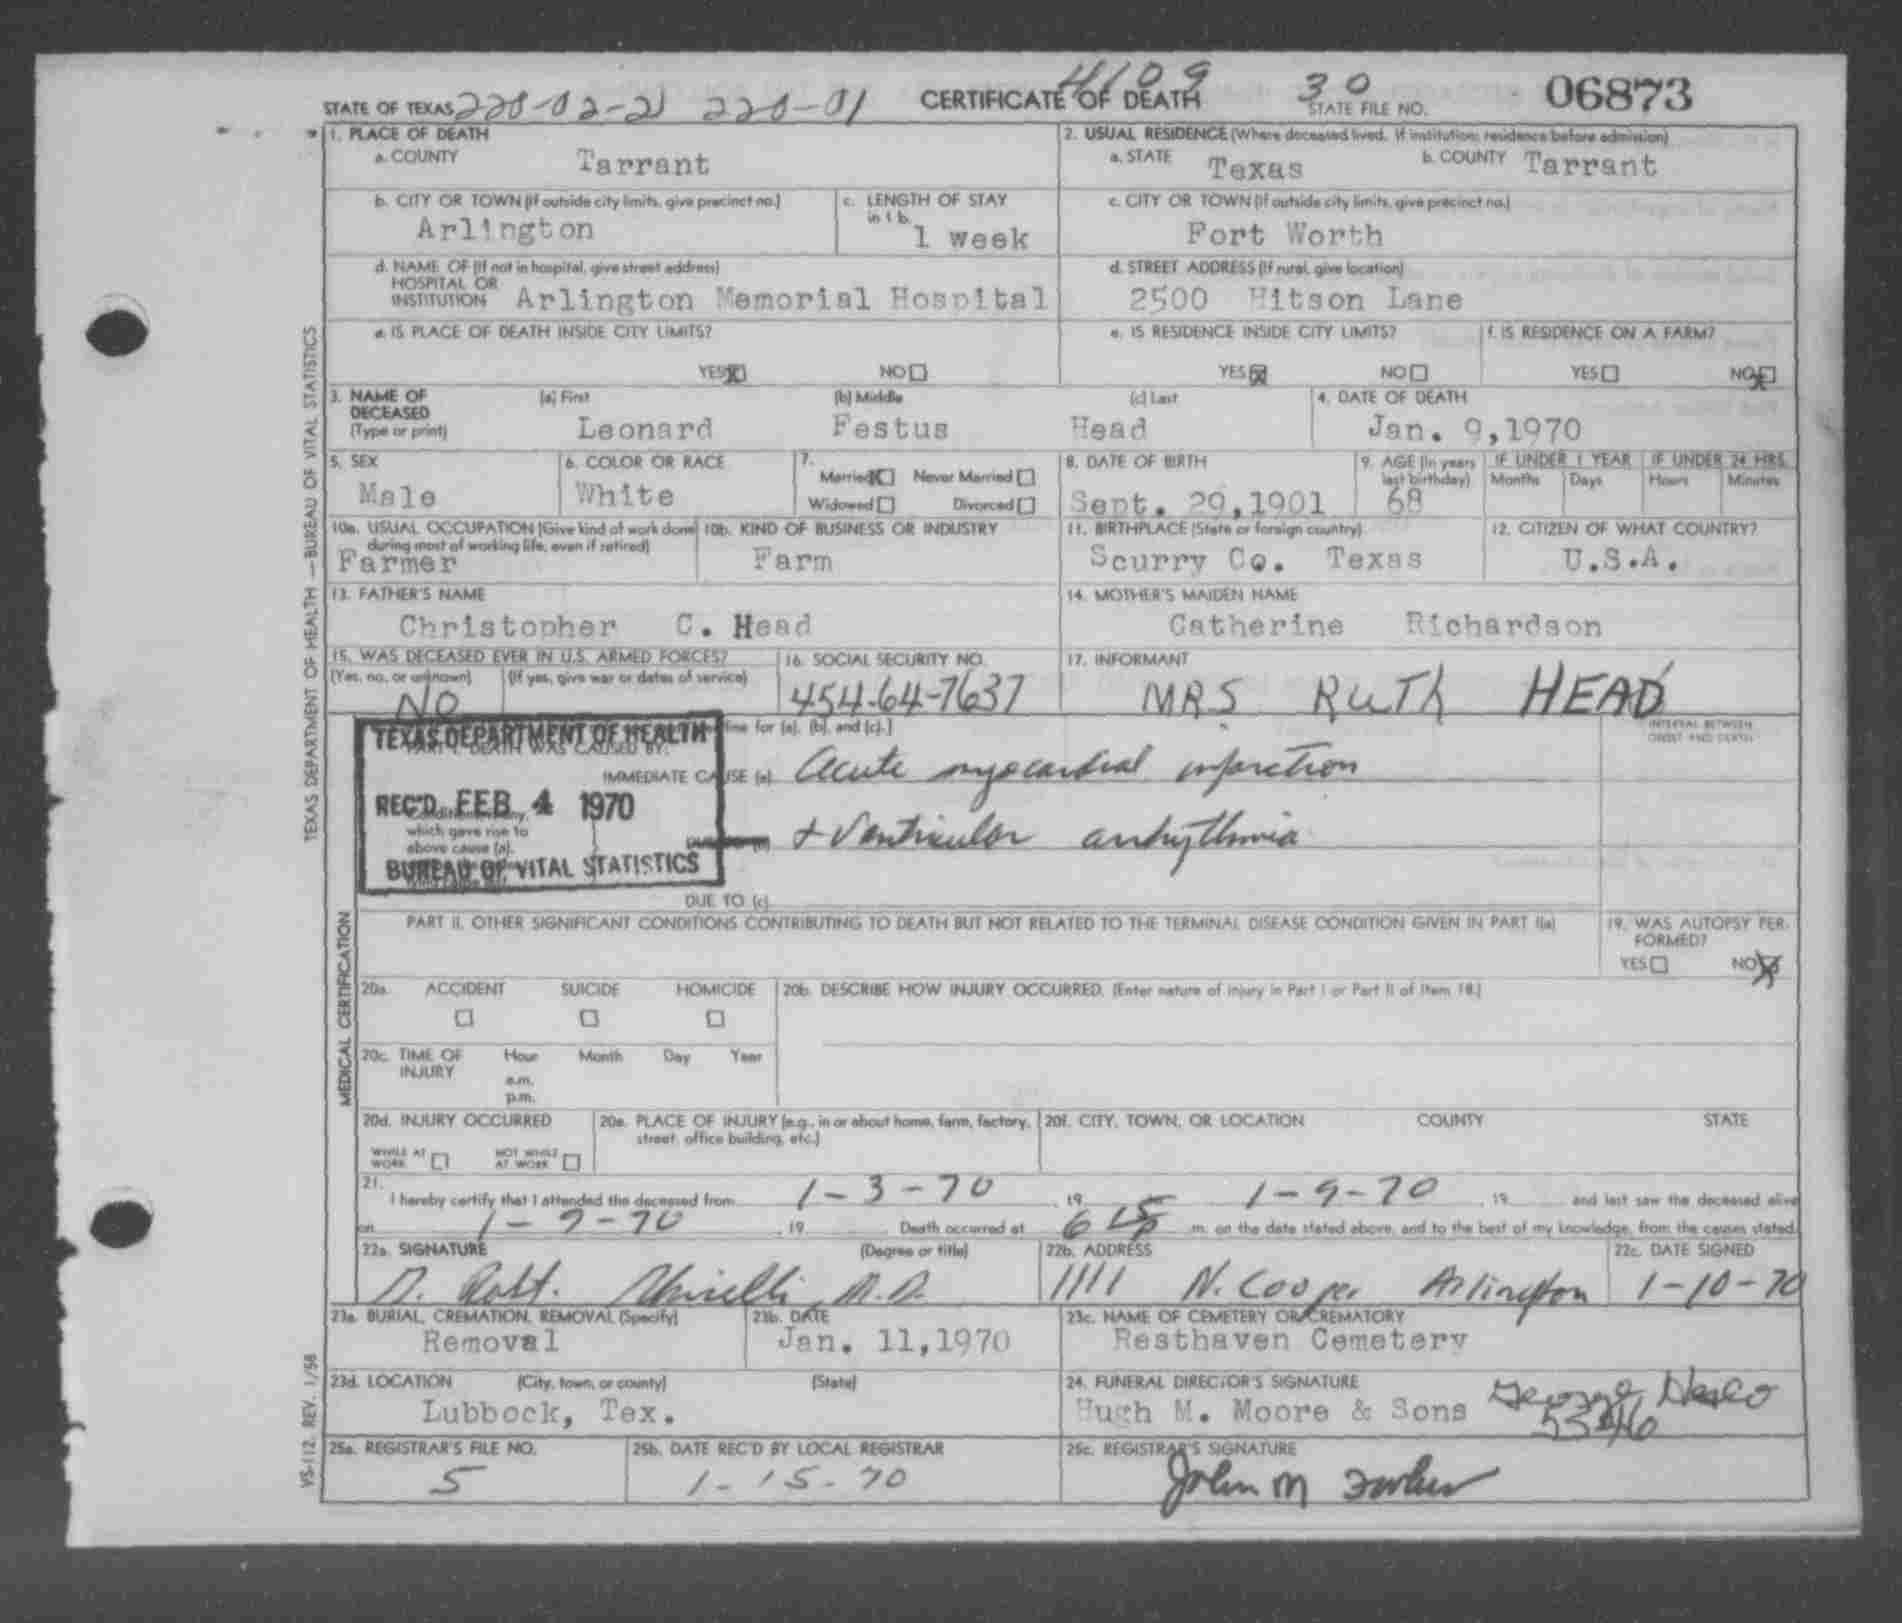 STATE OF TEXAS 220-02-21 220-01 CERTIFICATE OF DEATH 4109 30 STATE FILE NO. 06873
1. PLACE OF DEATH
a. COUNTY Tarrant
2. USUAL RESIDENCE (Where deceased lived. If institution: residence before admission)
a. STATE Texas b. COUNTY Tarrant
b. CITY OR TOWN (If outside city limits, give precinct no.) Arlington
c. LENGTH OF STAY in 1 b. 1 week
c. CITY OR TOWN (If outside city limits, give precinct no.) Fort Worth
d. NAME OF (If not in hospital, give street address)
HOSPITAL OR
INSTITUTION Arlington Memorial Hospital
d. STREET ADDRESS (If rural, give location)
2500 Hitson Lane
e. IS PLACE OF DEATH INSIDE CITY LIMITS?
YES X NO
e. IS RESIDENCE INSIDE CITY LIMITS?
YES X NO
f. IS RESIDENCE ON A FARM?
YES NO X
3. NAME OF DECEASED (Type or print)
(a) First Leonard (b) Middle Festus (c) Last Head
4. DATE OF DEATH
Jan. 9,1970
5. SEX Male
6. COLOR OR RACE White
7. Married X Never Married
Widowed Divorced
8. DATE OF BIRTH Sept. 29,1901
9. AGE (In years last birthday) 68
IF UNDER 1 YEAR Months Days
IF UNDER 24 HRS. Hours Minutes
10a. USUAL OCCUPATION (Give kind of work done during most of working life, even if retired)
Farmer
10b. KIND OF BUSINESS OR INDUSTRY
Farm
11. BIRTHPLACE (State or foreign country)
Scurry Co. Texas
12. CITIZEN OF WHAT COUNTRY?
U.S.A.
13. FATHER'S NAME
Christopher C. Head
14. MOTHER'S MAIDEN NAME
Catherine Richardson
15. WAS DECEASED EVER IN U.S. ARMED FORCES?
(Yes, no, or unknown) (If yes, give war or dates of service)
NO
16. SOCIAL SECURITY NO.
454-64-7637
17. INFORMANT
MRS RUTH HEAD
TEXAS DEPARTMENT OF HEALTH
REC'D FEB 4 1970
BUREAU OF VITAL STATISTICS
line for (a), (b), and (c).]
PART I. DEATH WAS CAUSED BY:
INTERVAL BETWEEN ONSET AND DEATH
IMMEDIATE CAUSE (a) Acute myocardial infarction
which gave rise to
above cause (a),
+ Ventricular arrhythmia
DUE TO (c)
PART II. OTHER SIGNIFICANT CONDITIONS CONTRIBUTING TO DEATH BUT NOT RELATED TO THE TERMINAL DISEASE CONDITION GIVEN IN PART I(a)
19. WAS AUTOPSY PERFORMED?
YES NO X
20a. ACCIDENT SUICIDE HOMICIDE
20b. DESCRIBE HOW INJURY OCCURRED. (Enter nature of injury in Part I or Part II of Item 18.)
20c. TIME OF INJURY Hour Month Day Year
a.m.
p.m.
20d. INJURY OCCURRED
WHILE AT WORK NOT WHILE AT WORK
20e. PLACE OF INJURY (e.g., in or about home, farm, factory, street, office building, etc.)
20f. CITY, TOWN, OR LOCATION COUNTY STATE
21. I hereby certify that I attended the deceased from 1-3-70, 19 1-9-70, 19 and last saw the deceased alive
on 1-9-70, 19 Death occurred at 6 15 p m. on the date stated above, and to the best of my knowledge, from the causes stated.
22a. SIGNATURE (Degree or title)
D. Robt. M.D.
22b. ADDRESS
1111 N. Cooper Arlington
22c. DATE SIGNED
1-10-70
23a. BURIAL, CREMATION, REMOVAL (Specify)
Removal
23b. DATE
Jan. 11,1970
23c. NAME OF CEMETERY OR CREMATORY
Resthaven Cemetery
23d. LOCATION (City, town, or county) (State)
Lubbock, Tex.
24. FUNERAL DIRECTOR'S SIGNATURE
Hugh M. Moore & Sons George
25a. REGISTRAR'S FILE NO.
5
25b. DATE REC'D BY LOCAL REGISTRAR
1-15-70
25c. REGISTRAR'S SIGNATURE
John M
TEXAS DEPARTMENT OF HEALTH — BUREAU OF VITAL STATISTICS
MEDICAL CERTIFICATION
VS-112, REV. 1/58